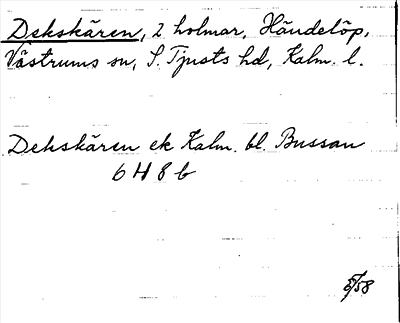 Dekskären, 2 holmar, Händelöp,
Västrums sn, S. Tjusts hd, Kalm. l.
Dekskären ek Kalm. bl. Bussan
6 H 8 b
5/58